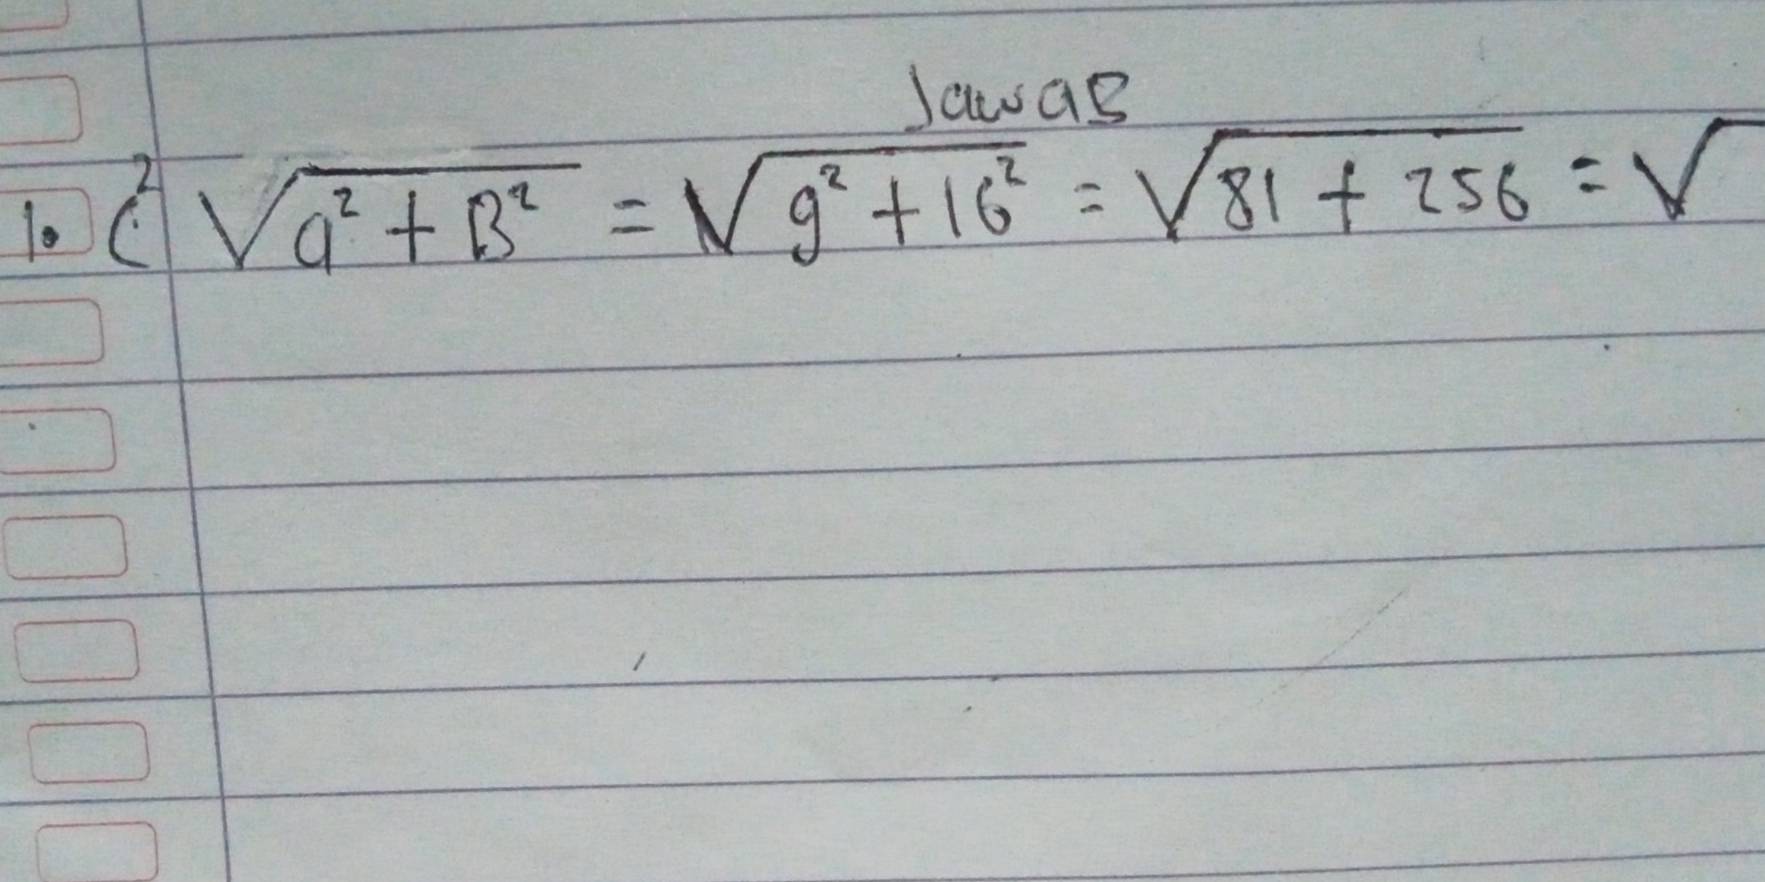 Jawab
1. C² √a² + B² = √9² + 16² = √81 + 256 = √